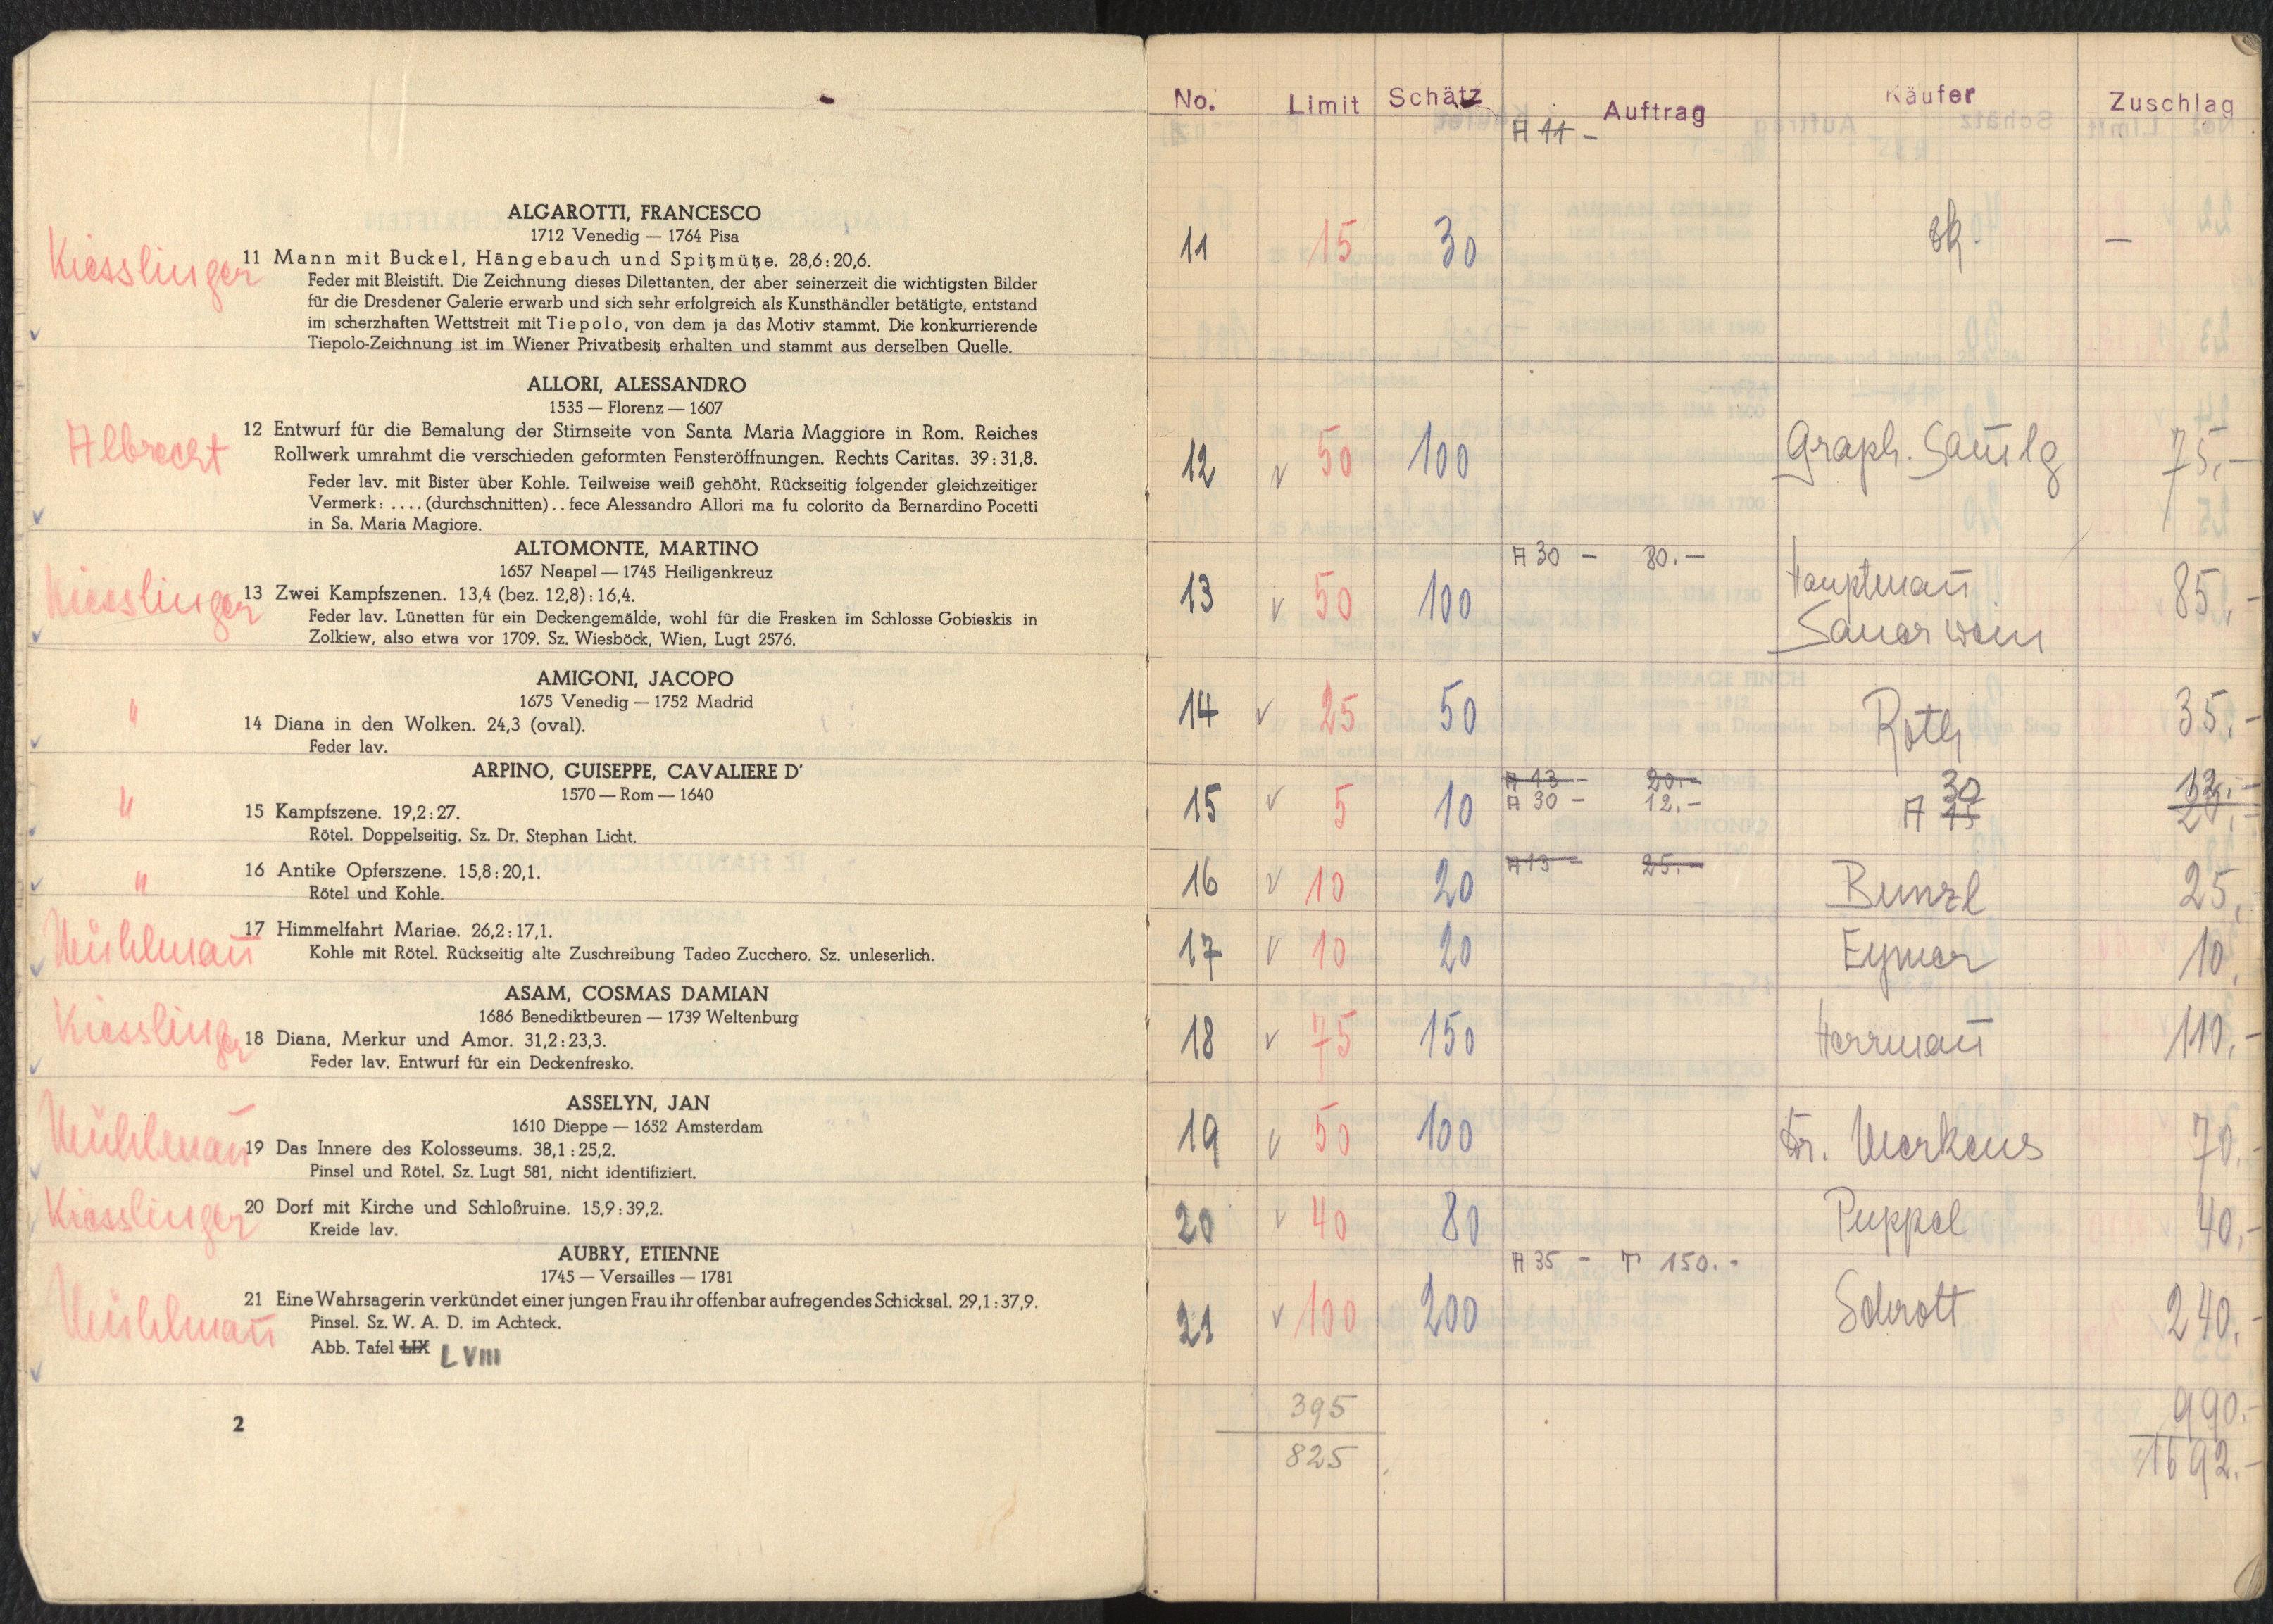 ALGAROTTI, FRANCESCO
1712 Venedig — 1764 Pisa
Kiesslinger
11 Mann mit Buckel, Hängebauch und Spitzmütze. 28,6 : 20,6.
Feder mit Bleistift. Die Zeichnung dieses Dilettanten, der aber seinerzeit die wichtigsten Bilder
für die Dresdener Galerie erwarb und sich sehr erfolgreich als Kunsthändler betätigte, entstand
im scherzhaften Wettstreit mit Tiepolo, von dem ja das Motiv stammt. Die konkurrierende
Tiepolo-Zeichnung ist im Wiener Privatbesitz erhalten und stammt aus derselben Quelle.
ALLORI, ALESSANDRO
1535 — Florenz — 1607
Albrecht
12 Entwurf für die Bemalung der Stirnseite von Santa Maria Maggiore in Rom. Reiches
Rollwerk umrahmt die verschieden geformten Fensteröffnungen. Rechts Caritas. 39 : 31,8.
Feder lav. mit Bister über Kohle. Teilweise weiß gehöht. Rückseitig folgender gleichzeitiger
Vermerk: .... (durchschnitten) .. fece Alessandro Allori ma fu colorito da Bernardino Pocetti
in Sa. Maria Magiore.
ALTOMONTE, MARTINO
1657 Neapel — 1745 Heiligenkreuz
Kiesslinger
13 Zwei Kampfszenen. 13,4 (bez. 12,8) : 16,4.
Feder lav. Lünetten für ein Deckengemälde, wohl für die Fresken im Schlosse Gobieskis in
Zolkiew, also etwa vor 1709. Sz. Wiesböck, Wien, Lugt 2576.
AMIGONI, JACOPO
1675 Venedig — 1752 Madrid
"
14 Diana in den Wolken. 24,3 (oval).
Feder lav.
ARPINO, GUISEPPE, CAVALIERE D'
1570 — Rom — 1640
"
15 Kampfszene. 19,2 : 27.
Rötel. Doppelseitig. Sz. Dr. Stephan Licht.
"
16 Antike Opferszene. 15,8 : 20,1.
Rötel und Kohle.
Mühlmann
17 Himmelfahrt Mariae. 26,2 : 17,1.
Kohle mit Rötel. Rückseitig alte Zuschreibung Tadeo Zucchero. Sz. unleserlich.
ASAM, COSMAS DAMIAN
1686 Benediktbeuren — 1739 Weltenburg
Kiesslinger
18 Diana, Merkur und Amor. 31,2 : 23,3.
Feder lav. Entwurf für ein Deckenfresko.
ASSELYN, JAN
1610 Dieppe — 1652 Amsterdam
Mühlmann
19 Das Innere des Kolosseums. 38,1 : 25,2.
Pinsel und Rötel. Sz. Lugt 581, nicht identifiziert.
Kiesslinger
20 Dorf mit Kirche und Schloßruine. 15,9 : 39,2.
Kreide lav.
AUBRY, ETIENNE
1745 — Versailles — 1781
Mühlmann
21 Eine Wahrsagerin verkündet einer jungen Frau ihr offenbar aufregendes Schicksal. 29,1 : 37,9.
Pinsel. Sz. W. A. D. im Achteck.
Abb. Tafel LIX LVIII
2
No. Limit Schätz Auftrag Käufer Zuschlag
A 11 -
11 15 30 —
12 ✓ 50 100 Graph. Samlg 75,-
A 30 - 80.-
13 ✓ 50 100 Hauptmann 85,-
Sauerwein
14 ✓ 25 50 Roth 35.-
A 13 - 20.- 30 12.-
15 ✓ 5 10 A 30 - 12.- A 15
A 13 - 25.-
16 ✓ 10 20 Bunzl 25,
17 ✓ 10 20 Eymer 10,
18 ✓ 75 150 Herrmann 110,-
19 ✓ 50 100 Dr. Merkens 70,-
20 ✓ 40 80 Puppel 40,-
A 35 - T 150.-
21 ✓ 100 200 Schrott 240,-
395 990.-
825 1692.-